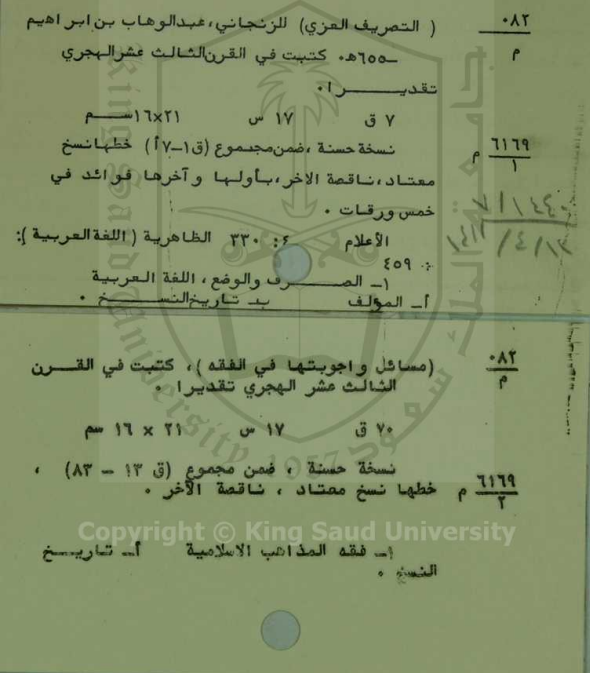 ٠٨٢ ( التصريف العزي) للزنجاني،عبدالوهاب بن ابراهيم
م ــ٦٥٥ه‍٠ كتبت في القرن الثالث عشر الهجري
تقديـــــرا٠
٧ ق ١٧ س ٢١×١٦ســم
٦١٦٩ م نسخة حسنة ،ضمن مجموع (ق١–٧أ) خطها نسخ
١ معتاد،ناقصة الاخر،بأولها و آخرها فوائد في
خمس ورقات ٠
الأعلام ٤: ٣٣٠ الظاهرية ( اللغة العربية ):
٤٥٩ ٠
١ــ الصـــرف والوضع ، اللغة العربية
أــ المؤلف بــ تاريخ النســـخ ٠
٠٨٢ (مسائل و اجوبتها في الفقه )، كتبت في القـــرن
م الثالث عشر الهجري تقديرا ٠
٧٠ ق ١٧ س ٢١ × ١٦ سم
نسخة حسنة ، ضمن مجموع (ق ١٣ – ٨٣) ،
٦١٦٩ م خطها نسخ معتاد ، ناقصة الآخر ٠
٢
Copyright © King Saud University
١ــ فقه المذاهب الاسلامية أــ تاريـــخ
النسخ ٠
King Saud University
1957
جامعة الملك سعود